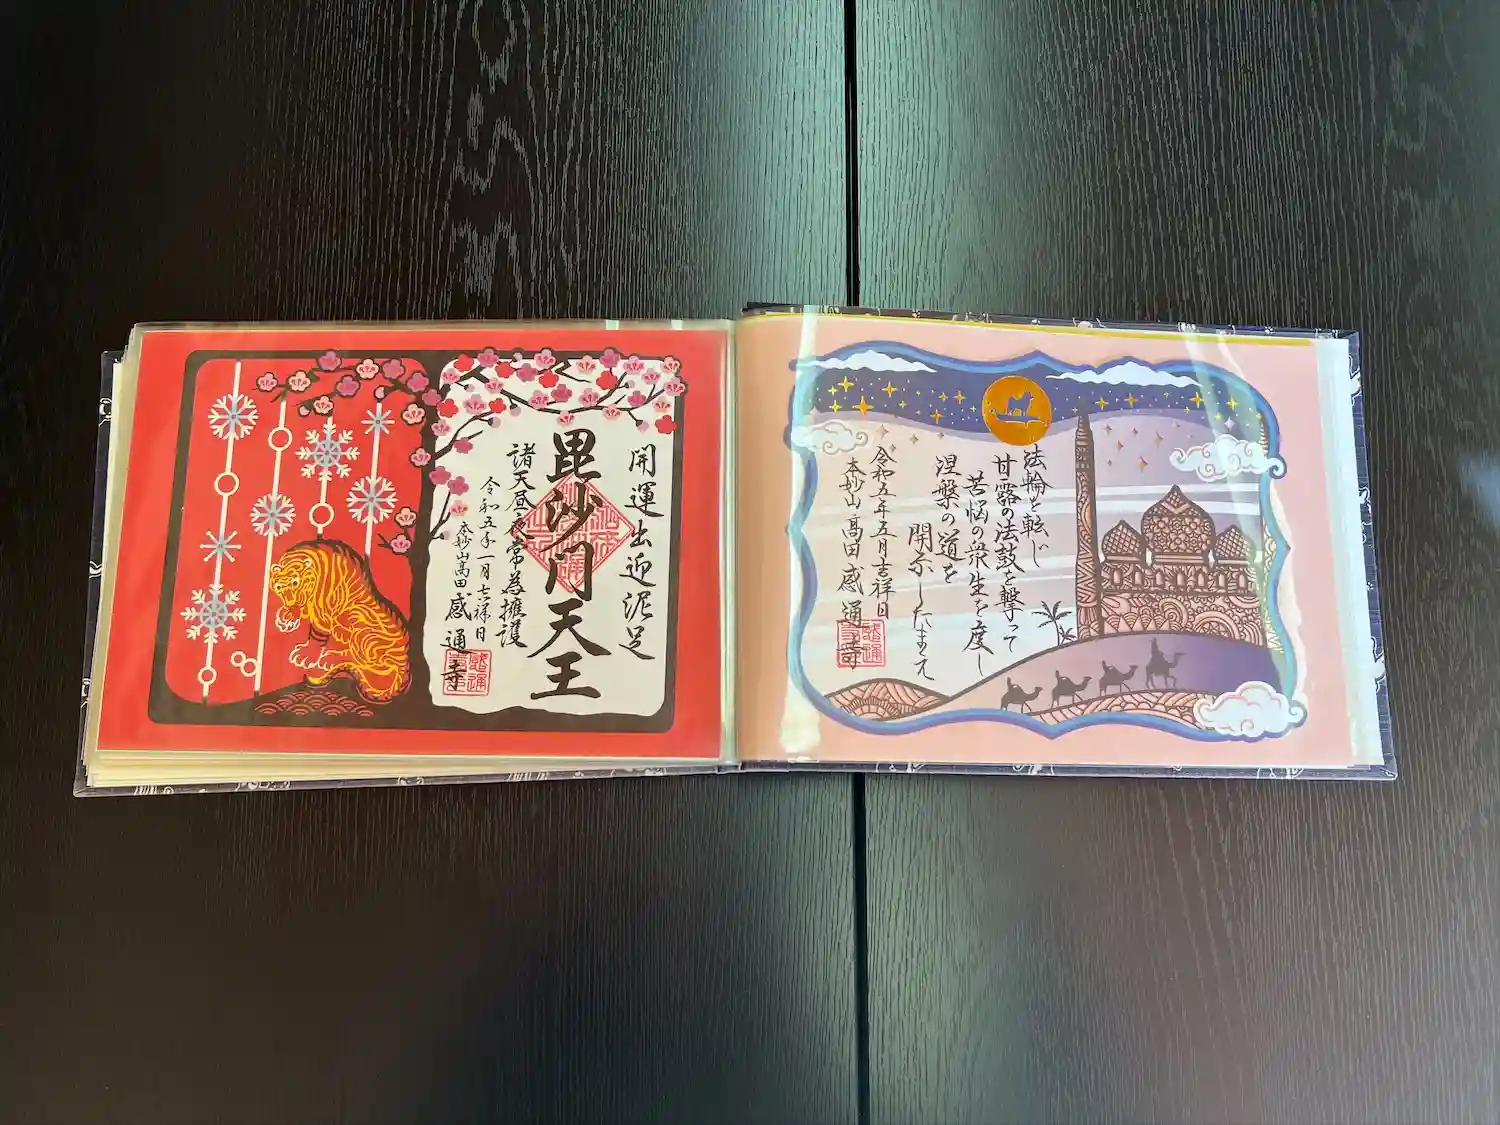 開運出迎泥足
毘沙門天王
諸天昼夜常為擁護
令和五年一月吉祥日
本妙山高田感通寺
法輪を転じ
甘露の法鼓を撃って
苦悩の衆生を度し
涅槃の道を
開示したまえ
令和五年五月吉祥日
本妙山高田感通寺